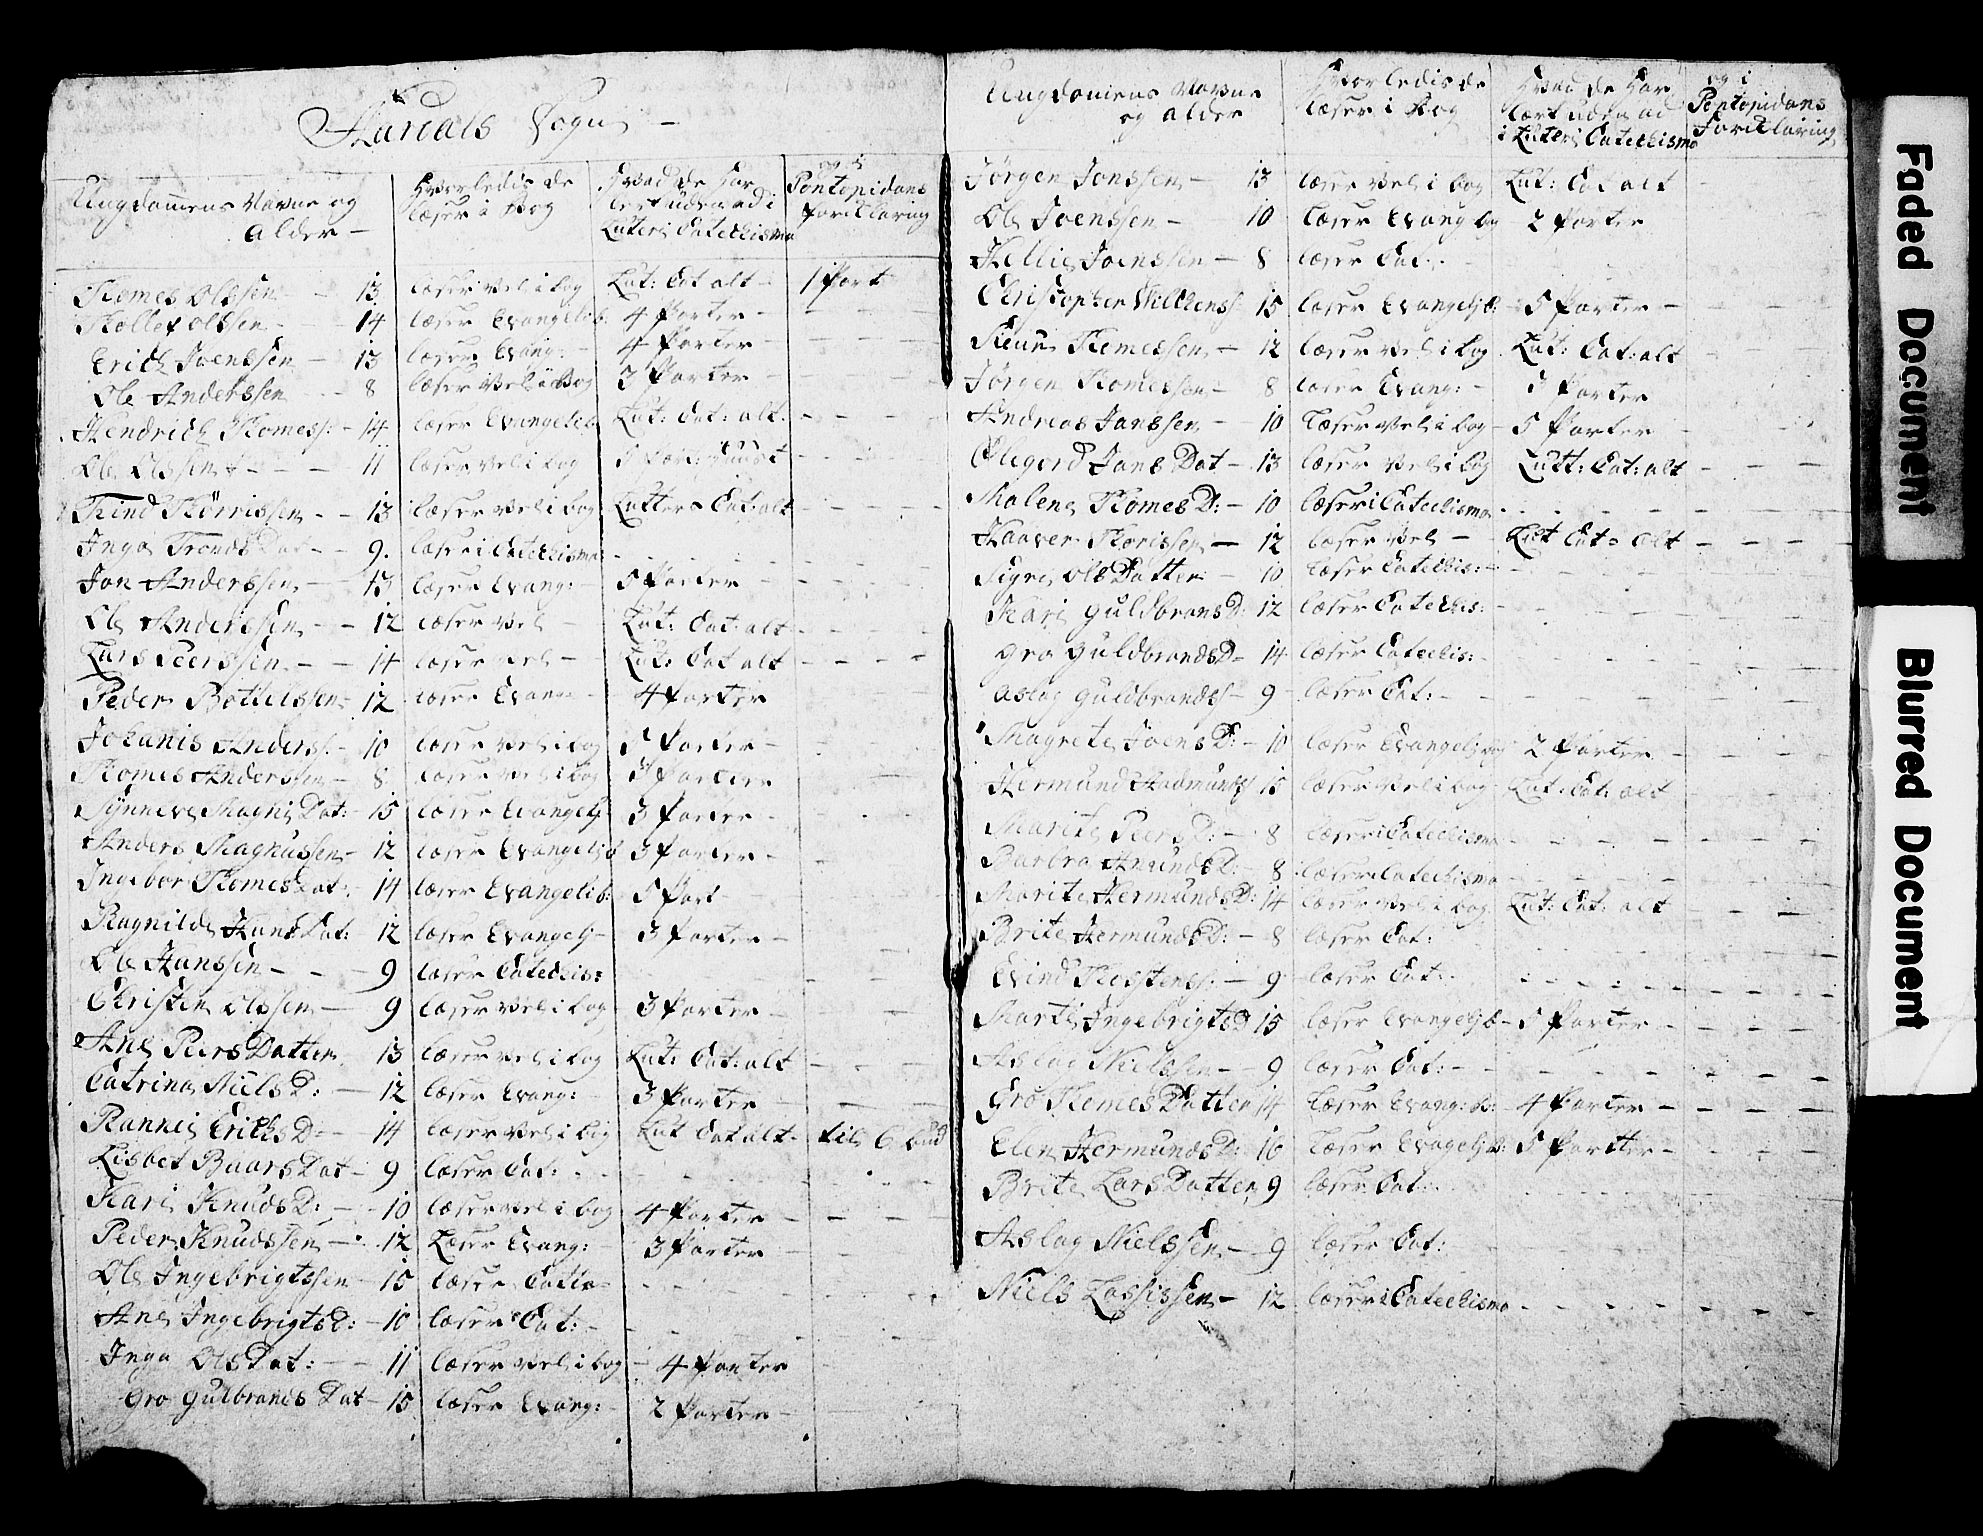 Hurdals Sogn –
Ungdommens Navne og alder –
Hvorledis de læser i Bog
Hvad de har lært uden ad i Luteri Catechismo
og i Pontopidans forklaring
Tomes Olssen – 13 læser vel i bog Lut: Cat alt – 1 Part
Tollef olssen – 14 læser Evangelib: 4 Parter –
Erich Joenssen – 13 læser Evang: – 4 Parter –
Ole Anderssen – 8 læser vel i Bog 3 Parter –
Hendrich Tomess: – 14 læser Evangelib Lut: Cat: alt.
Ole Olssen – 11 læser vel i bog
Trind Tørrissen – 13 læser vel i bog Lutters Cat: alt
Inga Tronds Dat – 9. læser i Catechismo
Jon Anderssen – 13 læser Evang: 5 Parter
Ole Anderssen – 12 læser vel – Lut: Cat: alt
Lars Peerssen – 14 læser vel – Lut: Cat alt
Peder Bottelssen – 12 læser Evang 4 Parter
Johanis Anders: – 10 læser vel i bog 5 Parter –
Tomes Anderssen – 8 læser vel i bog 3 Parter
Synneve Magni Dat: – 15 læser Evangelj: 3 Parter –
Anders Magnussen – 12 læser Evangeljb 3 Parter –
Ingebor Tomes Dat: 14 læser Evangelib: 5 Part
Ragnilde Hans Dat: 12 læser Evangelj – 3 Parter –
Ole Hanssen – 9 læser Catechis:
Christen Olssen – 9 læser vel i bog 3 Parter –
Ane Peers Datter 13 læser vel i bog Lut: Cat: alt
Catrina Niels D: – 12 læser Evang: 3 Parter
Rannei Erichs D: – 14 læser vel i bog Lut Cat alt – til 6 bud
Lisbet Baars Dat – 9 læser Cat:
Kari Knuds D: – 10 læser vel i bog 4 Parter –
Peder Knudssen – 12 Læser Evang: – 3 Parter
Ole Ingebrigtssen – 15 læser Catte –
Ane Ingebrigts D: – 10 læser Cat: –
Inga Ols Dat: – 11 læser vel i bog – 4 Parter
Gro Gulbrands Dat – 15 læser Evang: 2 Parter –
Ungdomens Navne og alder
Hvorledis de læser i Bog
Hvad de har lært uden ad i Luteri Catechismo
og i Pontopidans Forklaring
Jørgen Jonssen – 13 læser vel i bog Lut: Cat alt
Ole Joenssen – 10 læser Evang bog 2 Parter
Hellie Joenssen – 8 læser Cat:
Christopher Willhenss: 15 læser Evangeljb: 5 Parter –
Tomessen – 12 læser vel i bog Lut: Cat: alt
Jørgen Tomessen – 8 læser Evang: – 3 Parter
Andreas Janssen – 10 læser vel i bog – 5 Parter
Olegord Jans Dat – 13 læser vel i bog Lutt: Cat: alt
Malene Tomes D: – 10 læser i Catechismo
Haaver Torissen – 12 læser vel – Lut Cat: alt
Sigri Ols Datter – 10 læser Catechis: –
Kari Guldbrans D: 12 læser Catechis:
Gro Guldbrands D – 14 læser Catechis:
Aslag Guldbrands – 9 læser Cat: –
Magrete Joens D: – 10 læser Evangelj bog 2 Parter
Hermund Aadmunds 15 læser vel i bog Lut: Cat: alt
Marite Peers D: – 8 læser i Catechismo
Barbra Amunds D: – 8 læser i Catechismo
Marite Hermunds D: 14 læser vel i bog Lut: Cat: alt
Brite Hermunds D: – 8 læser Cat:
Evind Tostens: – 9 læser Cat:
Marte Ingebrigts D 15 læser Evangeljb – 5 Parter
Aslag Nielssen – 9 læser Cat: –
Gro Tomes Datter 14 læser Evang: b: 4 Parter –
Elen Hermunds D: 16 læser Evageljb: 5 Partter –
Brite Lars Datter 9 læser Cat:
Aslag Nielssen – 9 læser Cat:
Niels Lassissen – 12 læser i Catechismo
Faded Document
Blurred Document